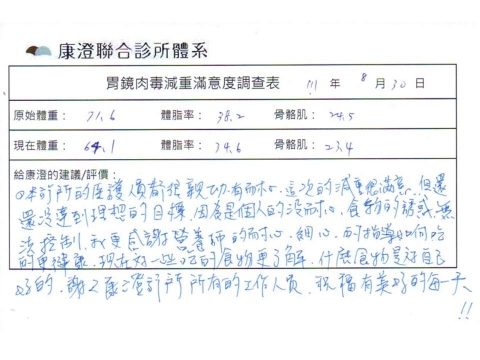 康澄聯合診所體系
胃鏡肉毒減重滿意度調查表 111 年 8 月 30 日
原始體重： 71.6 體脂率： 38.2 骨骼肌： 24.5
現在體重： 64.1 體脂率： 34.6 骨骼肌： 23.4
給康澄的建議/評價：
診所的醫護人員都很親切有耐心，這次的減重很滿意，但還
還沒達到理想的目標，因為是個人的沒耐心，食物的誘惑無
法控制，我更感謝營養師的耐心、細心，的指導如何吃
的更健康，現在對一些吃的食物更了解，什麼食物是對自己
好的，謝謝康澄診所所有的工作人員，祝福有美好的每一天
!!